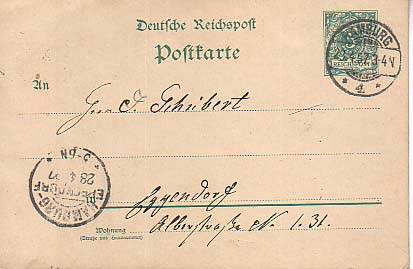 Deutsche Reichspost
Postkarte
HAMBURG
3-4N
* 4. *
REICHSPOST
An
Herrn J. Schubert
Eppendorf
Albertstraße N 1. 31.
Wohnung
(Straße und Hausnummer)
HAMBURG-
EPPENDORF
28 4 97
* 5-6N *